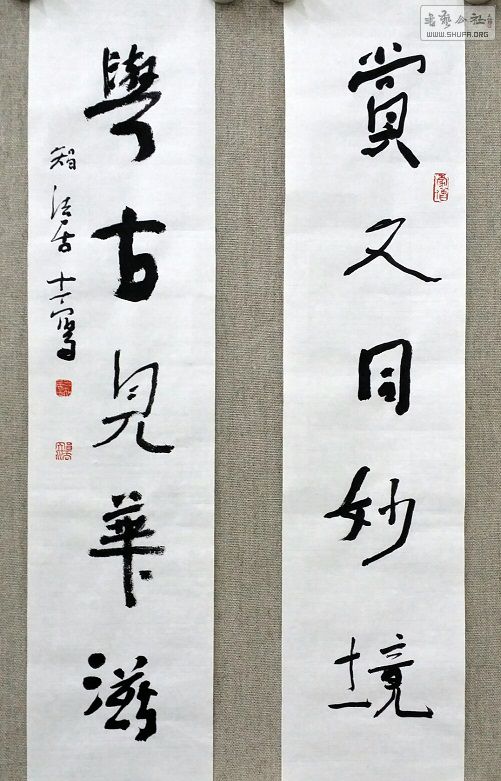 賞文同妙境
學古見華滋
書藝公社
WWW.SHUFA.ORG